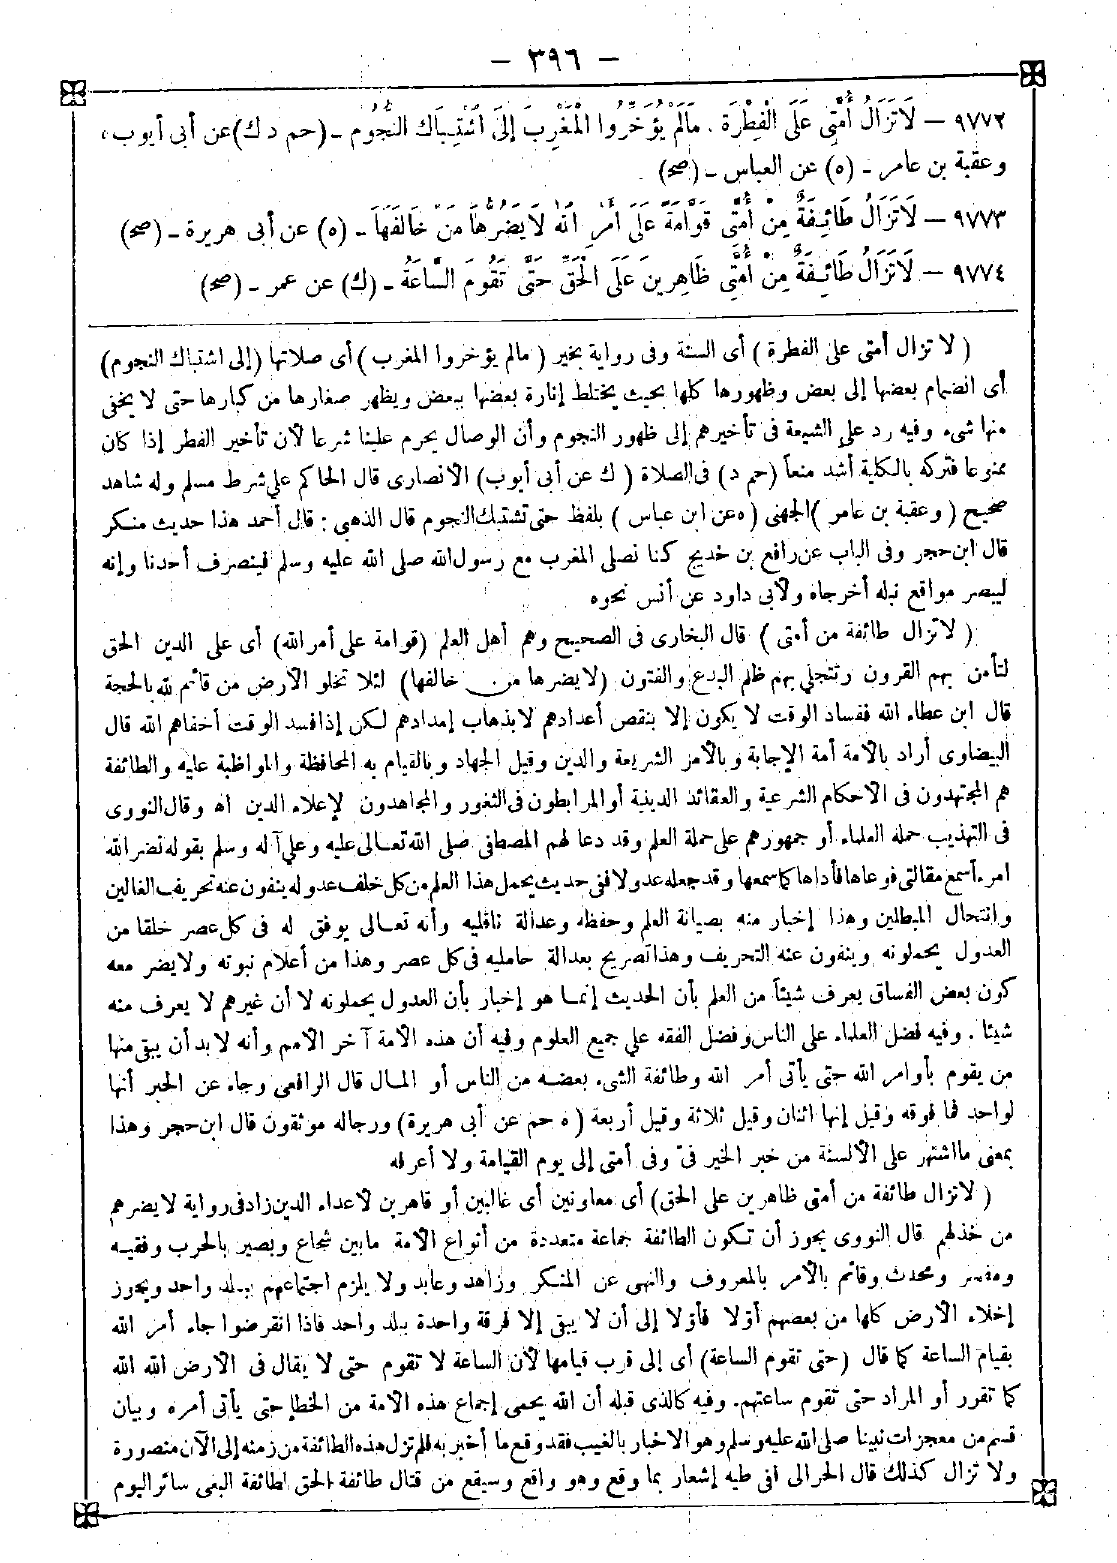 — ٣٩٦ —
٩٧٧٢ — لَا تَزَالُ أُمَّتِى عَلَى الْفِطْرَةِ . مَالَمْ يُؤَخِّرُوا الْمَغْرِبَ إِلَى اشْتِبَاكِ النُّجُومِ ـ (حم د ك) عن أبى أيوب ،
وعقبة بن عامر ـ (ه) عن العباس ـ (صح)
٩٧٧٣ — لَا تَزَالُ طَائِفَةٌ مِنْ أُمَّتِى قَوَّامَةً عَلَى أَمْرِ اللهِ لَا يَضُرُّهَا مَنْ خَالَفَهَا ـ (ه) عن أبى هريرة ـ (صح)
٩٧٧٤ — لَا تَزَالُ طَائِفَةٌ مِنْ أُمَّتِى ظَاهِرِينَ عَلَى الْحَقِّ حَتَّى تَقُومَ السَّاعَةُ ـ (ك) عن عمر ـ (صح)
( لا تزال أمتى على الفطرة ) أى السنة وفى رواية بخير ( مالم يؤخروا المغرب ) أى صلاتها (إلى اشتباك النجوم)
أى انضمام بعضها إلى بعض وظهورها كلها بحيث يختلط إنارة بعضها ببعض ويظهر صغارها من كبارها حتى لا يخفى
منها شىء وفيه رد على الشيعة فى تأخيرهم إلى ظهور النجوم وأن الوصال يحرم علينا شرعا لأن تأخير الفطر إذا كان
ممنوعا فتركه بالكلية أشد منعاً (حم د) فى الصلاة ( ك عن أبى أيوب) الأنصارى قال الحاكم على شرط مسلم وله شاهد
صحيح ( وعقبة بن عامر )الجهنى ( ه عن ابن عباس ) بلفظ حتى تشتبك النجوم قال الذهبى : قال أحمد هذا حديث منكر
قال ابن حجر وفى الباب عن رافع بن خديج كنا نصلى المغرب مع رسول الله صلى الله عليه وسلم فينصرف أحدنا وإنه
ليبصر مواقع نبله أخرجاه ولأبى داود عن أنس نحوه
( لا تزال طائفة من أمتى ) قال البخارى فى الصحيح وهم أهل العلم (قوامة على أمر الله) أى على الدين الحق
لتأمن بهم القرون وتتجلى بهم ظلم البدع والفتون (لا يضرها من خالفها) لئلا تخلو الأرض من قائم لله بالحجة
قال ابن عطاء الله ففساد الوقت لا يكون إلا بنقص أعدادهم لا بذهاب إمدادهم لكن إذا فسد الوقت أخفاهم الله قال
البيضاوى أراد بالأمة أمة الإجابة وبالأمر الشريعة والدين وقيل الجهاد وبالقيام به المحافظة والمواظبة عليه والطائفة
هم المجتهدون فى الأحكام الشرعية والعقائد الدينية أو المرابطون فى الثغور والمجاهدون لإعلاء الدين اه وقال النووى
فى التهذيب حمله العلماء أو جمهورهم على حملة العلم وقد دعا لهم المصطفى صلى الله تعالى عليه وعلى آله وسلم بقوله نضر الله
امرءاً سمع مقالتى فوعاها فأداها كما سمعها وقد جعله عدولا ففى حديث يحمل هذا العلم من كل خلف عدوله ينفون عنه تحريف الغالين
وانتحال المبطلين وهذا إخبار منه بصيانة العلم وحفظه وعدالة ناقليه وأنه تعالى يوفق له فى كل عصر خلقا من
العدول يحملونه وينفون عنه التحريف وهذا تصريح بعدالة حامليه فى كل عصر وهذا من أعلام نبوته ولا يضر معه
كون بعض الفساق يعرف شيئاً من العلم بأن الحديث إنما هو إخبار بأن العدول يحملونه لا أن غيرهم لا يعرف منه
شيئا . وفيه فضل العلماء على الناس وفضل الفقه على جميع العلوم وفيه أن هذه الأمة آخر الأمم وأنه لا بد أن يبقى منها
من يقوم بأوامر الله حتى يأتى أمر الله وطائفة الشىء بعضه من الناس أو المال قال الرافعى وجاء عن الخبر أنها
لواحد فما فوقه وقيل إنها اثنان وقيل ثلاثة وقيل أربعة ( ه حم عن أبى هريرة) ورجاله موثقون قال ابن حجر وهذا
بمعنى ما اشتهر على الألسنة من خبر الخير فىّ وفى أمتى إلى يوم القيامة ولا أعرفه
( لا تزال طائفة من أمتى ظاهرين على الحق) أى معاونين أى غالبين أو قاهرين لأعداء الدين زاد فى رواية لا يضرهم
من خذلهم قال النووى يجوز أن تكون الطائفة جماعة متعددة من أنواع الأمة مابين شجاع وبصير بالحرب وفقيه
ومفسر ومحدث وقائم بالأمر بالمعروف والنهى عن المنكر وزاهد وعابد ولا يلزم اجتماعهم ببلد واحد ويجوز
إخلاء الأرض كلها من بعضهم أوّلا فأوّلا إلى أن لا يبقى إلا فرقة واحدة ببلد واحد فاذا انقرضوا جاء أمر الله
بقيام الساعة كما قال (حتى تقوم الساعة) أى إلى قرب قيامها لأن الساعة لا تقوم حتى لا يقال فى الأرض الله الله
كما تقرر أو المراد حتى تقوم ساعتهم. وفيه كالذى قبله أن الله يحمى إجماع هذه الأمة من الخطإ حتى يأتى أمره وبيان
قسم من معجزات نبينا صلى الله عليه وسلم وهو الاخبار بالغيب فقد وقع ما أخبر به فلم تزل هذه الطائفة من زمنه إلى الآن منصورة
ولا تزال كذلك قال الحرالى ففى طيه إشعار بما وقع وهو واقع وسيقع من قتال طائفة الحق لطائفة البغى سائر اليوم